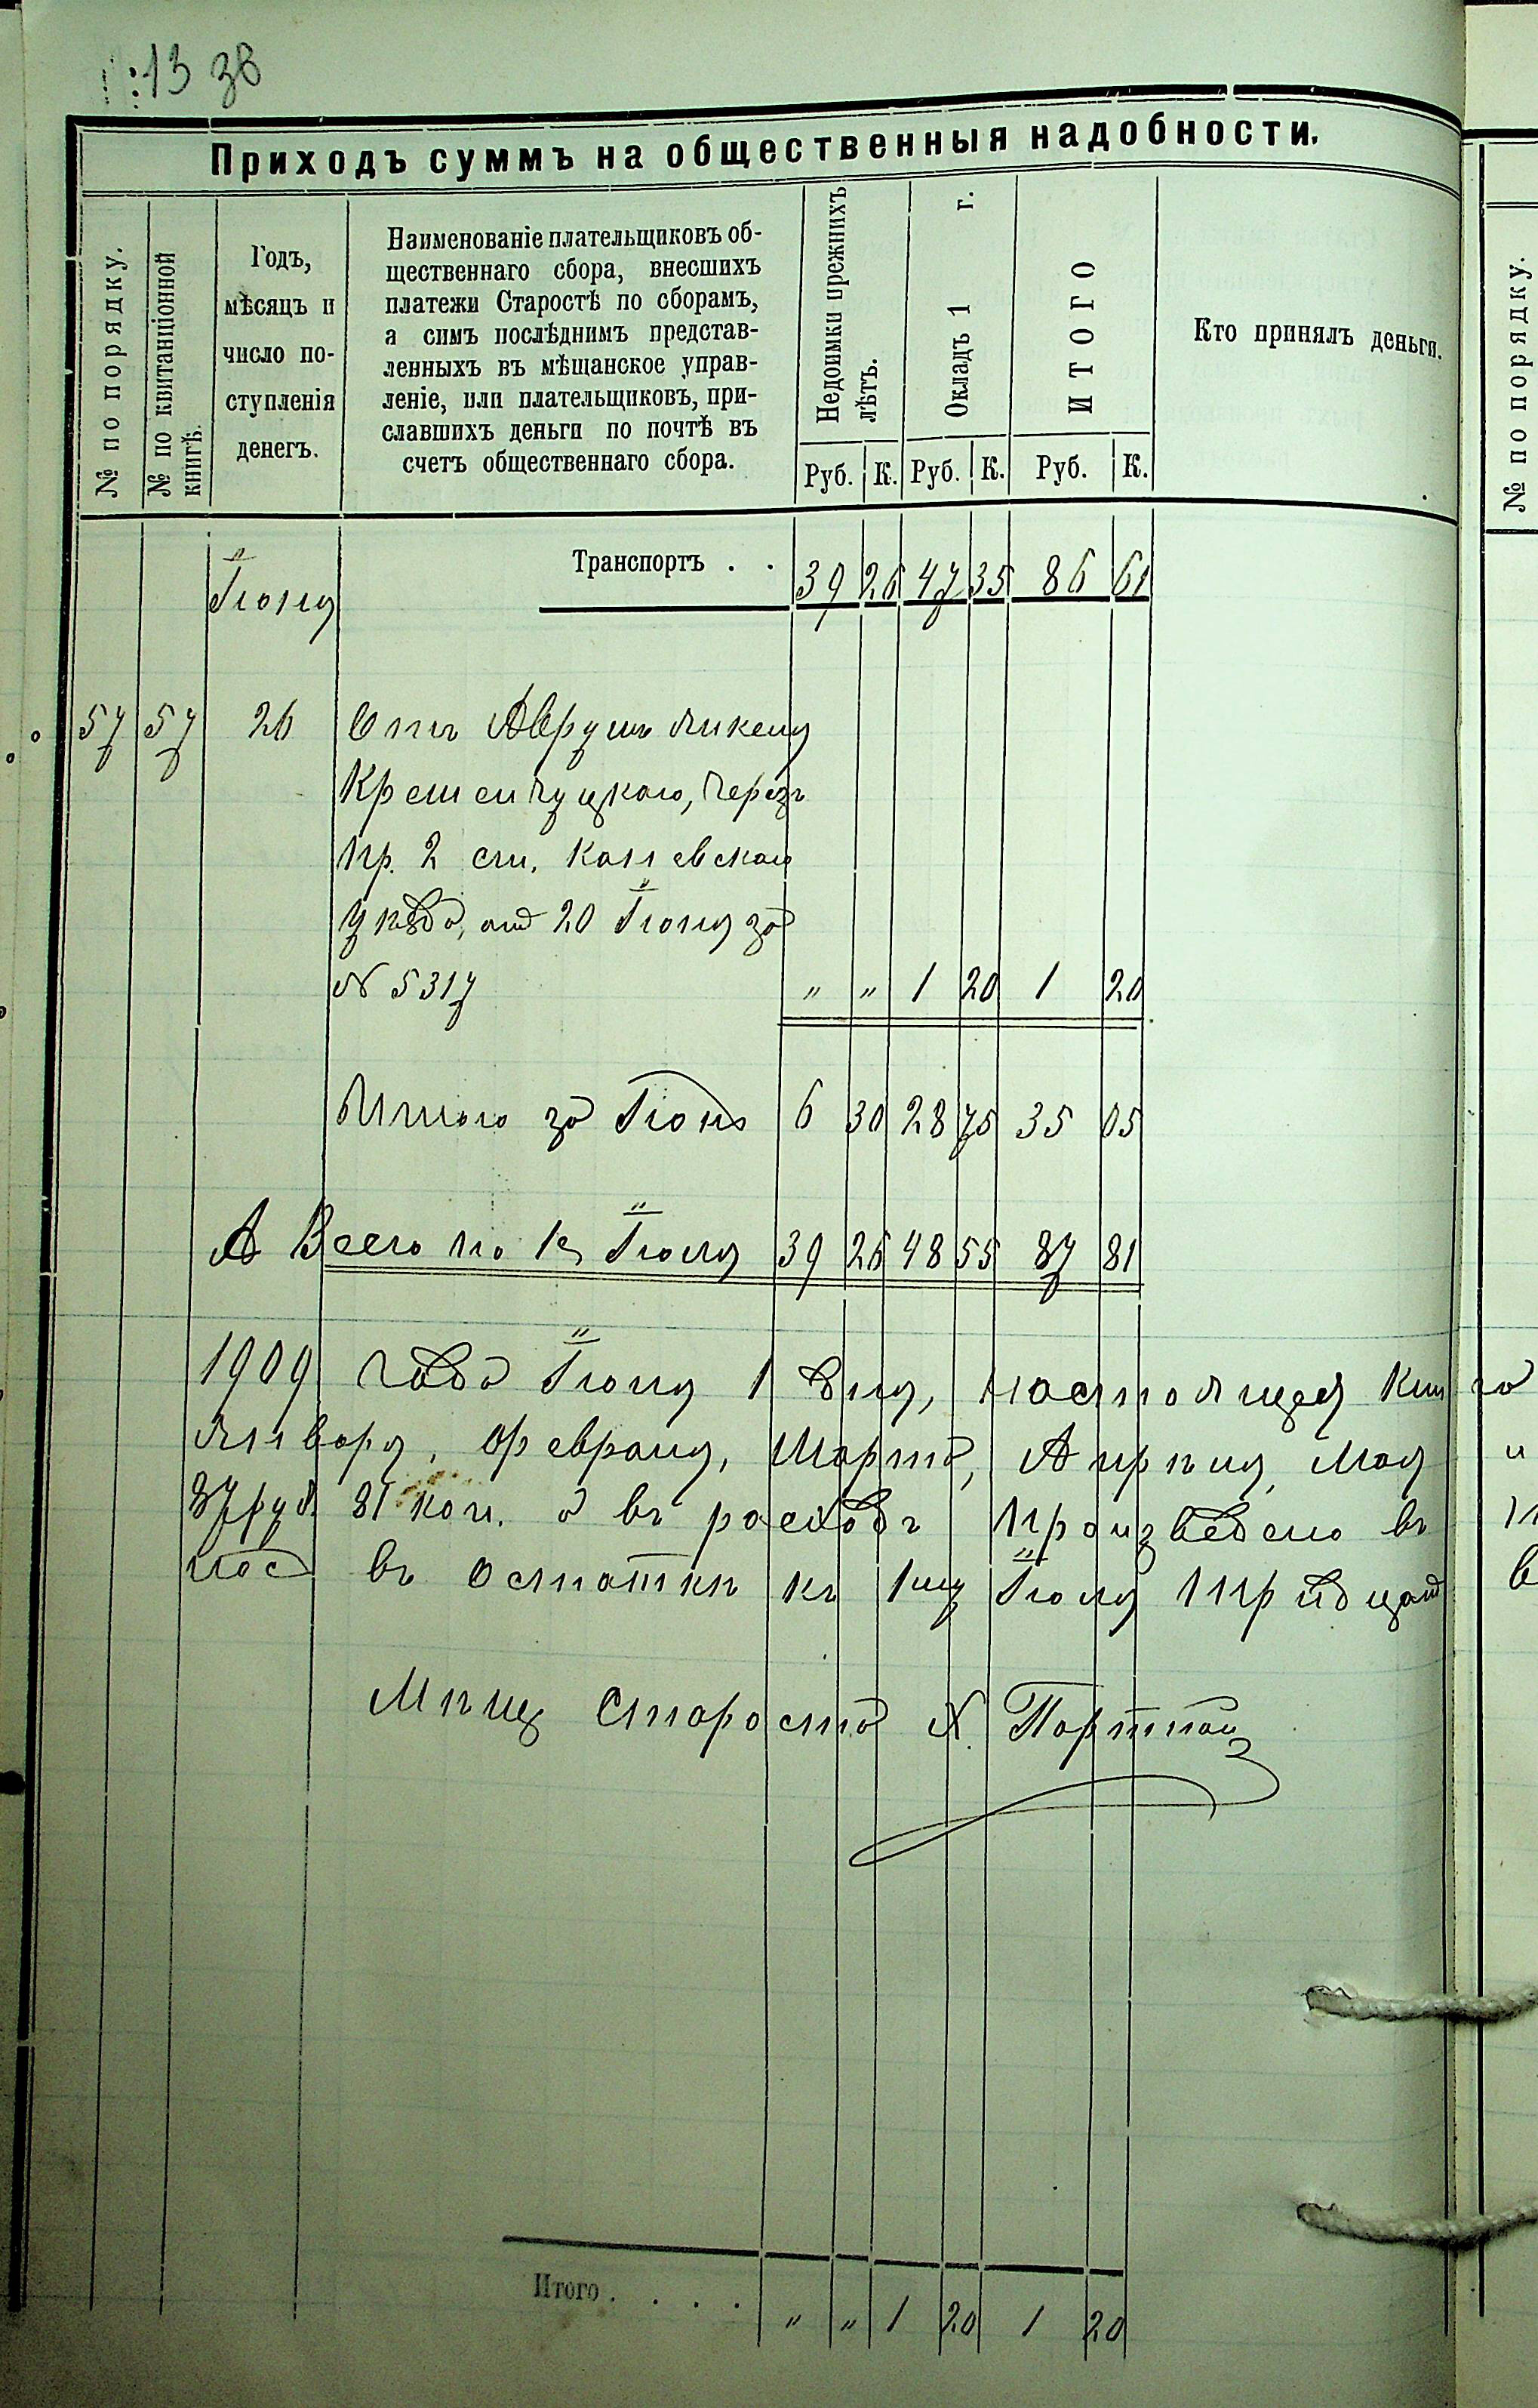 :13 38
Приходъ суммъ на общественныя надобности.
№ по порядку.
№ по квитанціонной книгѣ.
Годъ,
мѣсяцъ и
число по-
ступленія
денегъ.
Наименованіе плательщиковъ об-
щественнаго сбора, внесшихъ
платежи Старостѣ по сборамъ,
а симъ послѣднимъ представ-
ленныхъ въ мѣщанское управ-
леніе, или плательщиковъ, при-
славшихъ деньги по почтѣ въ
счетъ общественнаго сбора.
Недоимки прежнихъ лѣтъ.
Окладъ 1 г.
ИТОГО
Кто принялъ деньги.
Руб. К. Руб. К. Руб. К.
№ по порядку.
Транспортъ . . 39 26 47 35 86 61
Іюня
57 57 26 Отъ Авруш
Кременчуцкаго, черезъ
Пр. 2 ст. Каневскаго
уѣзда, отъ 20 Іюня за
№ 5317 " " 1 20 1 20
Итого за Іюнь 6 30 28 75 35 05
А Всего по 1е Іюля 39 26 48 55 87 81
1909 года Іюля 1 дня, настоящей кни
Января, Февраля, Марта, Апрѣля, Мая и
87 руб. 81 коп. а въ расходъ произведено въ
въ остаткѣ къ 1му Іюля в
Мѣщ Староста Х. Портной
Итого . . . . " " 1 20 1 20